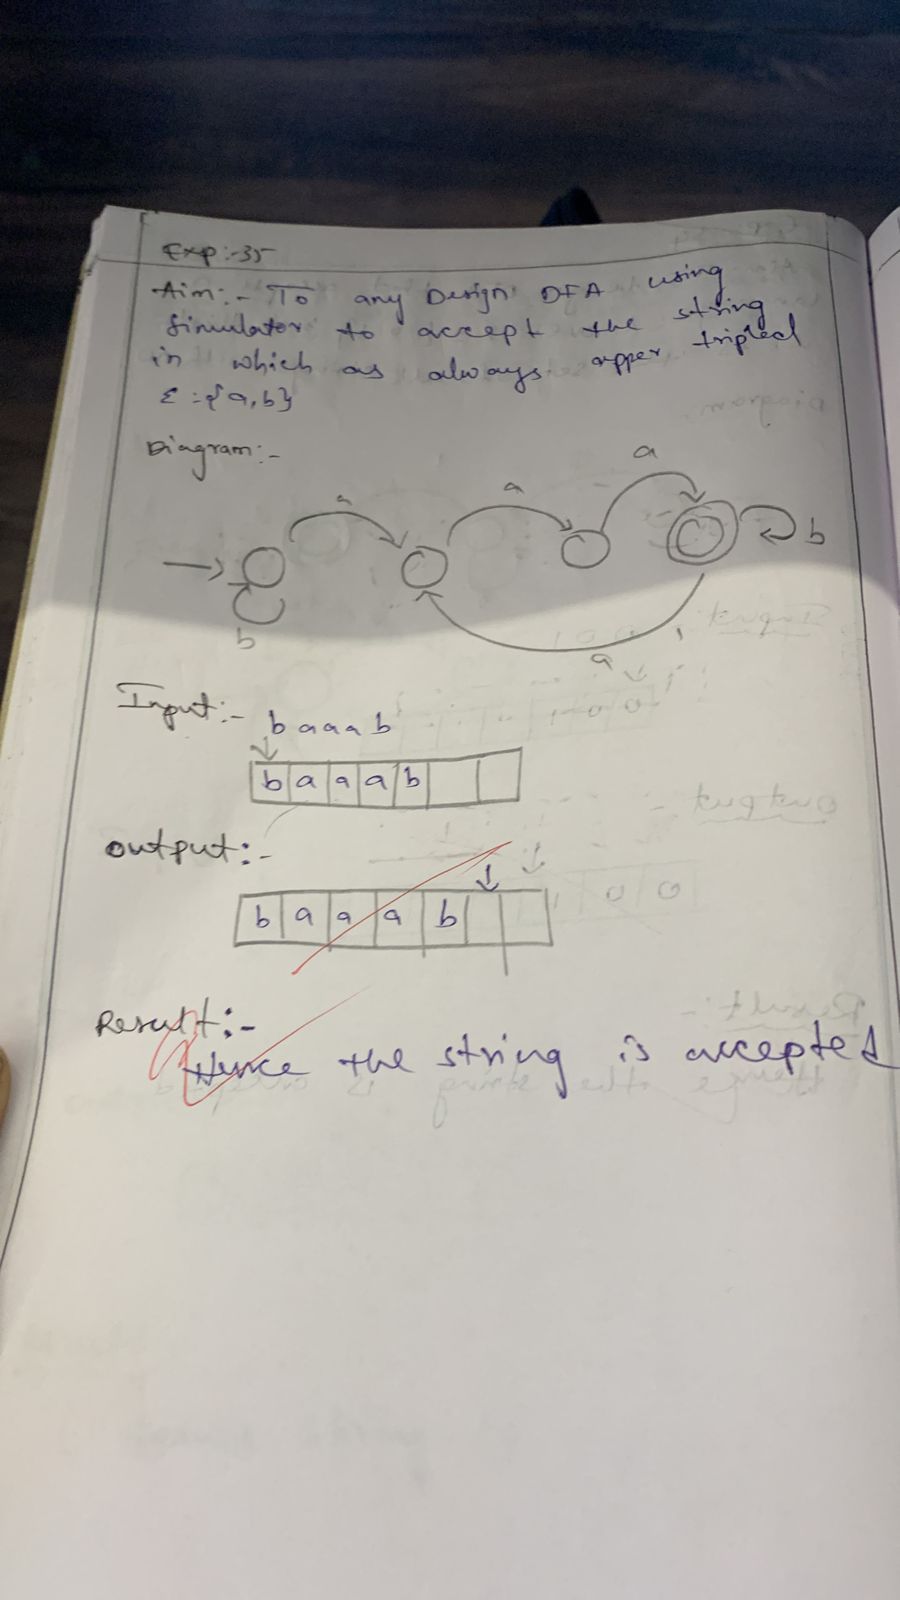 Exp:-35
Aim:- To any Design DFA using
Simulator to accept the string
in which as always apper tripled
Σ={a,b}
Diagram:-
a a a
b
b
a
Input:-
b a a a b
b a a a b
Output:-
b a a a b
Result:-
Hence the string is accepted